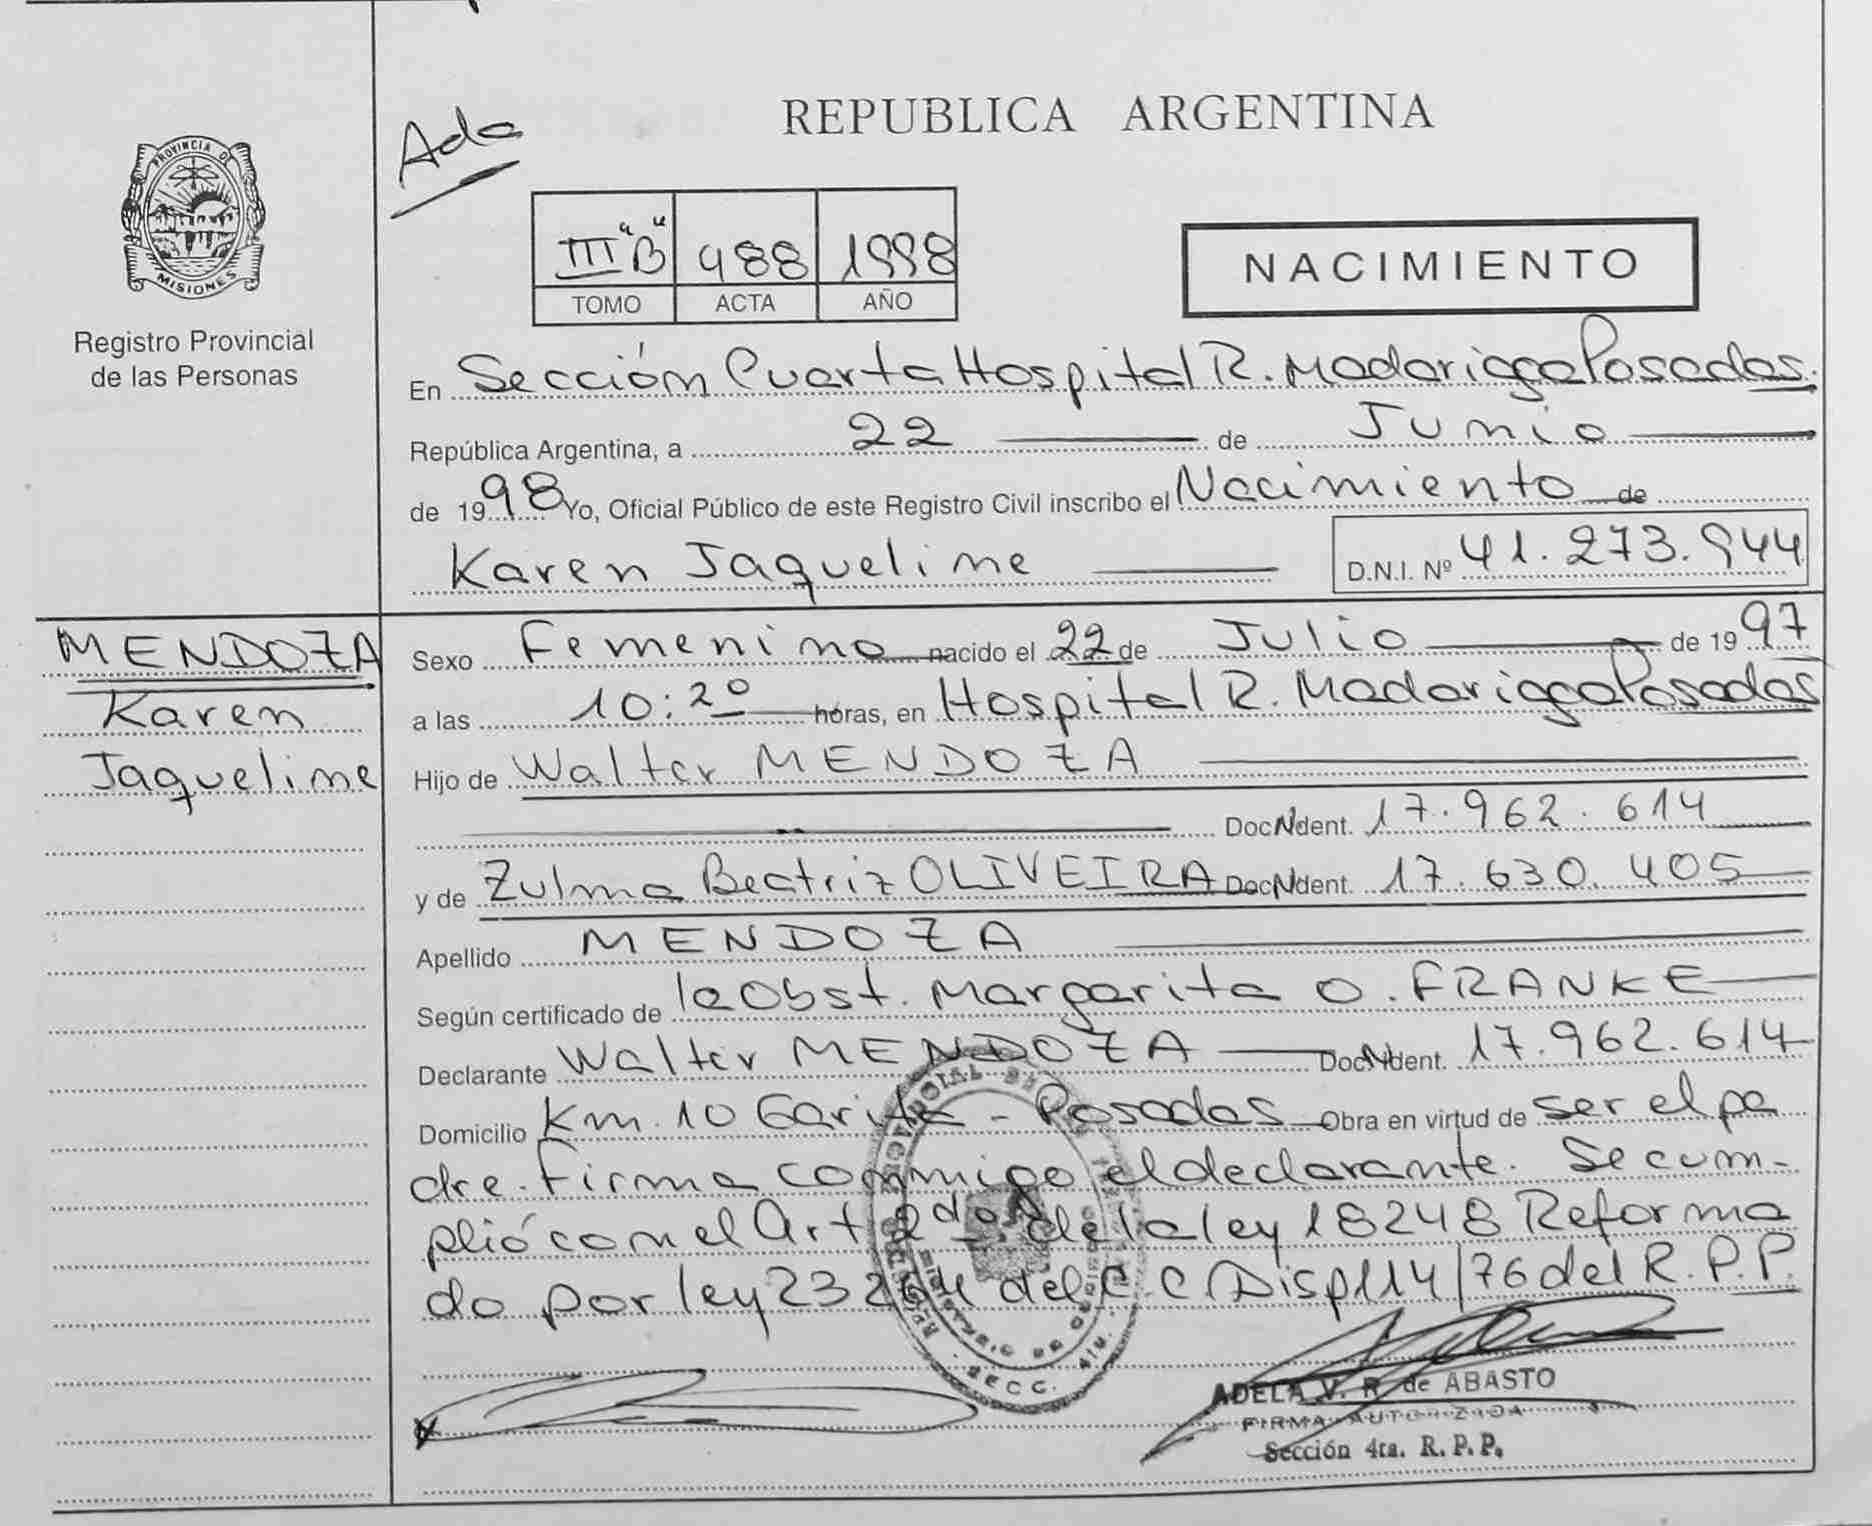 REPUBLICA ARGENTINA
Ada
PROVINCIA DE
MISIONES
Registro Provincial
de las Personas
III "B" 488 1998
TOMO ACTA AÑO
NACIMIENTO
En Sección Cuarta Hospital R. Madariaga Posadas.
República Argentina, a 22 de Junio
de 1998 Yo, Oficial Público de este Registro Civil inscribo el Nacimiento de
Karen Jaqueline D.N.I. Nº 41.273.944
MENDOZA
Karen
Jaqueline
Sexo Femenino nacido el 22 de Julio de 1997
a las 10:20 horas, en Hospital R. Madariaga Posadas
Hijo de Walter MENDOZA
Doc. Ident. 17.962.614
y de Zulma Beatriz OLIVEIRA Doc. Ident. 17.630.405
Apellido MENDOZA
Según certificado de la Obst. Margarita O. FRANKE
Declarante Walter MENDOZA Doc. Ident. 17.962.614
Domicilio Km. 10 Garita - Posadas Obra en virtud de ser el pa
dre. Firma conmigo el declarante. Se cum-
plió con el Art 2do de la ley 18248 Reforma
do por ley 23264 del C.C Disp 114/76 del R.P.P.
ADELA V. R. de ABASTO
FIRMA AUTORIZADA
Sección 4ta. R. P. P.